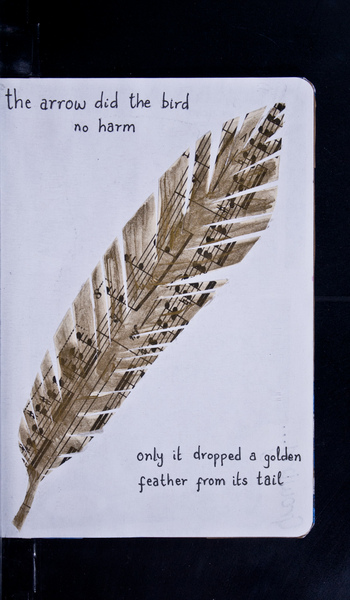 the arrow did the bird
no harm
only it dropped a golden
feather from its tail